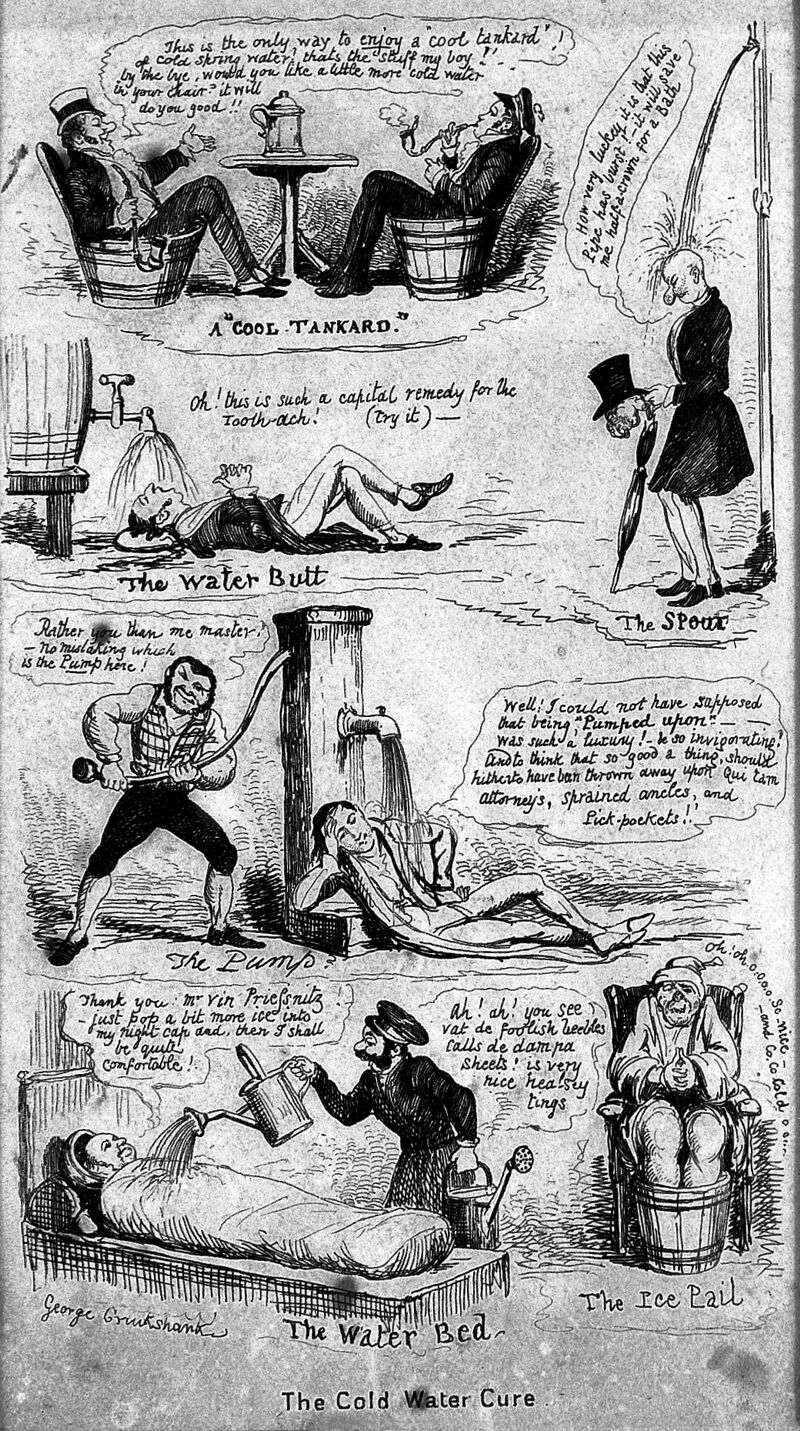 This is the only way to enjoy a "cool tankard"!
of cold spring water, thats the stuff my boy!!
by the bye, would you like a little more cold water
in your chair? it will
do you good!!
A "COOL TANKARD."
How very luckey it is that this
Pipe has burst! - it will save
me half a crown for a Bath
The Spout
Oh! this is such a capital remedy for the
Tooth-ach! (Try it) —
The Water Butt
Rather you than me master!
- no mistaking which
is the Pump here!
Well! I could not have supposed
that being "Pumped upon" — —
was such a luxury! - & so invigorating!
And to think that so good a thing, should
hitherto have been thrown away upon Qui tam
attorney's, sprained ancles, and
Pick-pockets!!
The Pump?
Thank you: Mr Vin Priessnitz!
- just pop a bit more ice into
my night cap and, then I shall
be quite
comfortable!
Ah! ah! you see,
vat de foolish beebles
calls de dampa
sheets! is very
nice healsey
tings
Oh! oh o.o.oo So nice -
- and co.co.cold o o—
George Cruikshank
The Water Bed
The Ice Pail
The Cold Water Cure.